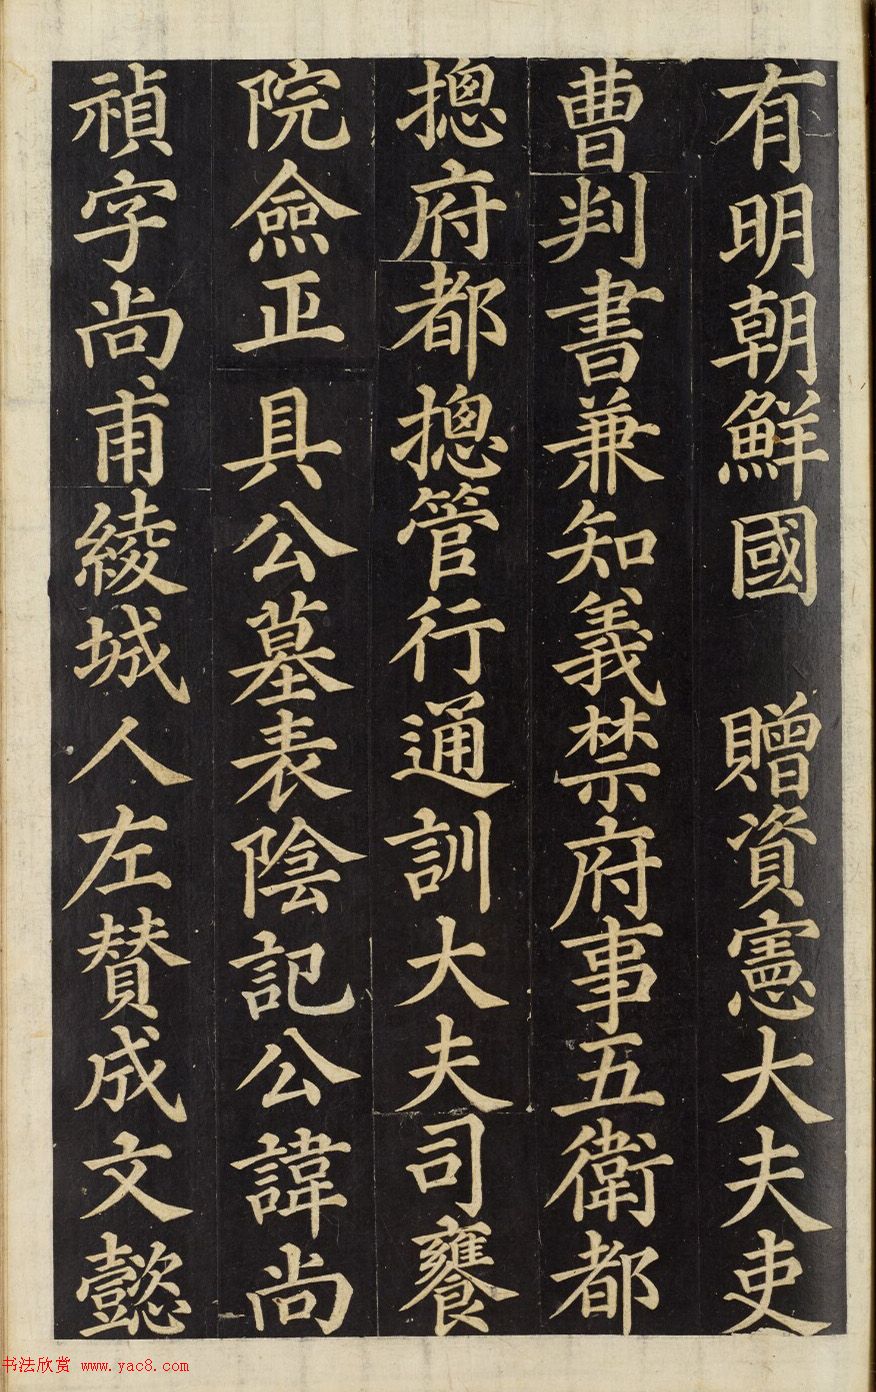 有明朝鮮國　贈資憲大夫吏
曹判書兼知義禁府事五衛都
摠府都摠管行通訓大夫司饔
院僉正具公墓表陰記公諱尚
禎字尚甫綾城人左賛成文懿
书法欣赏 www.yac8.com